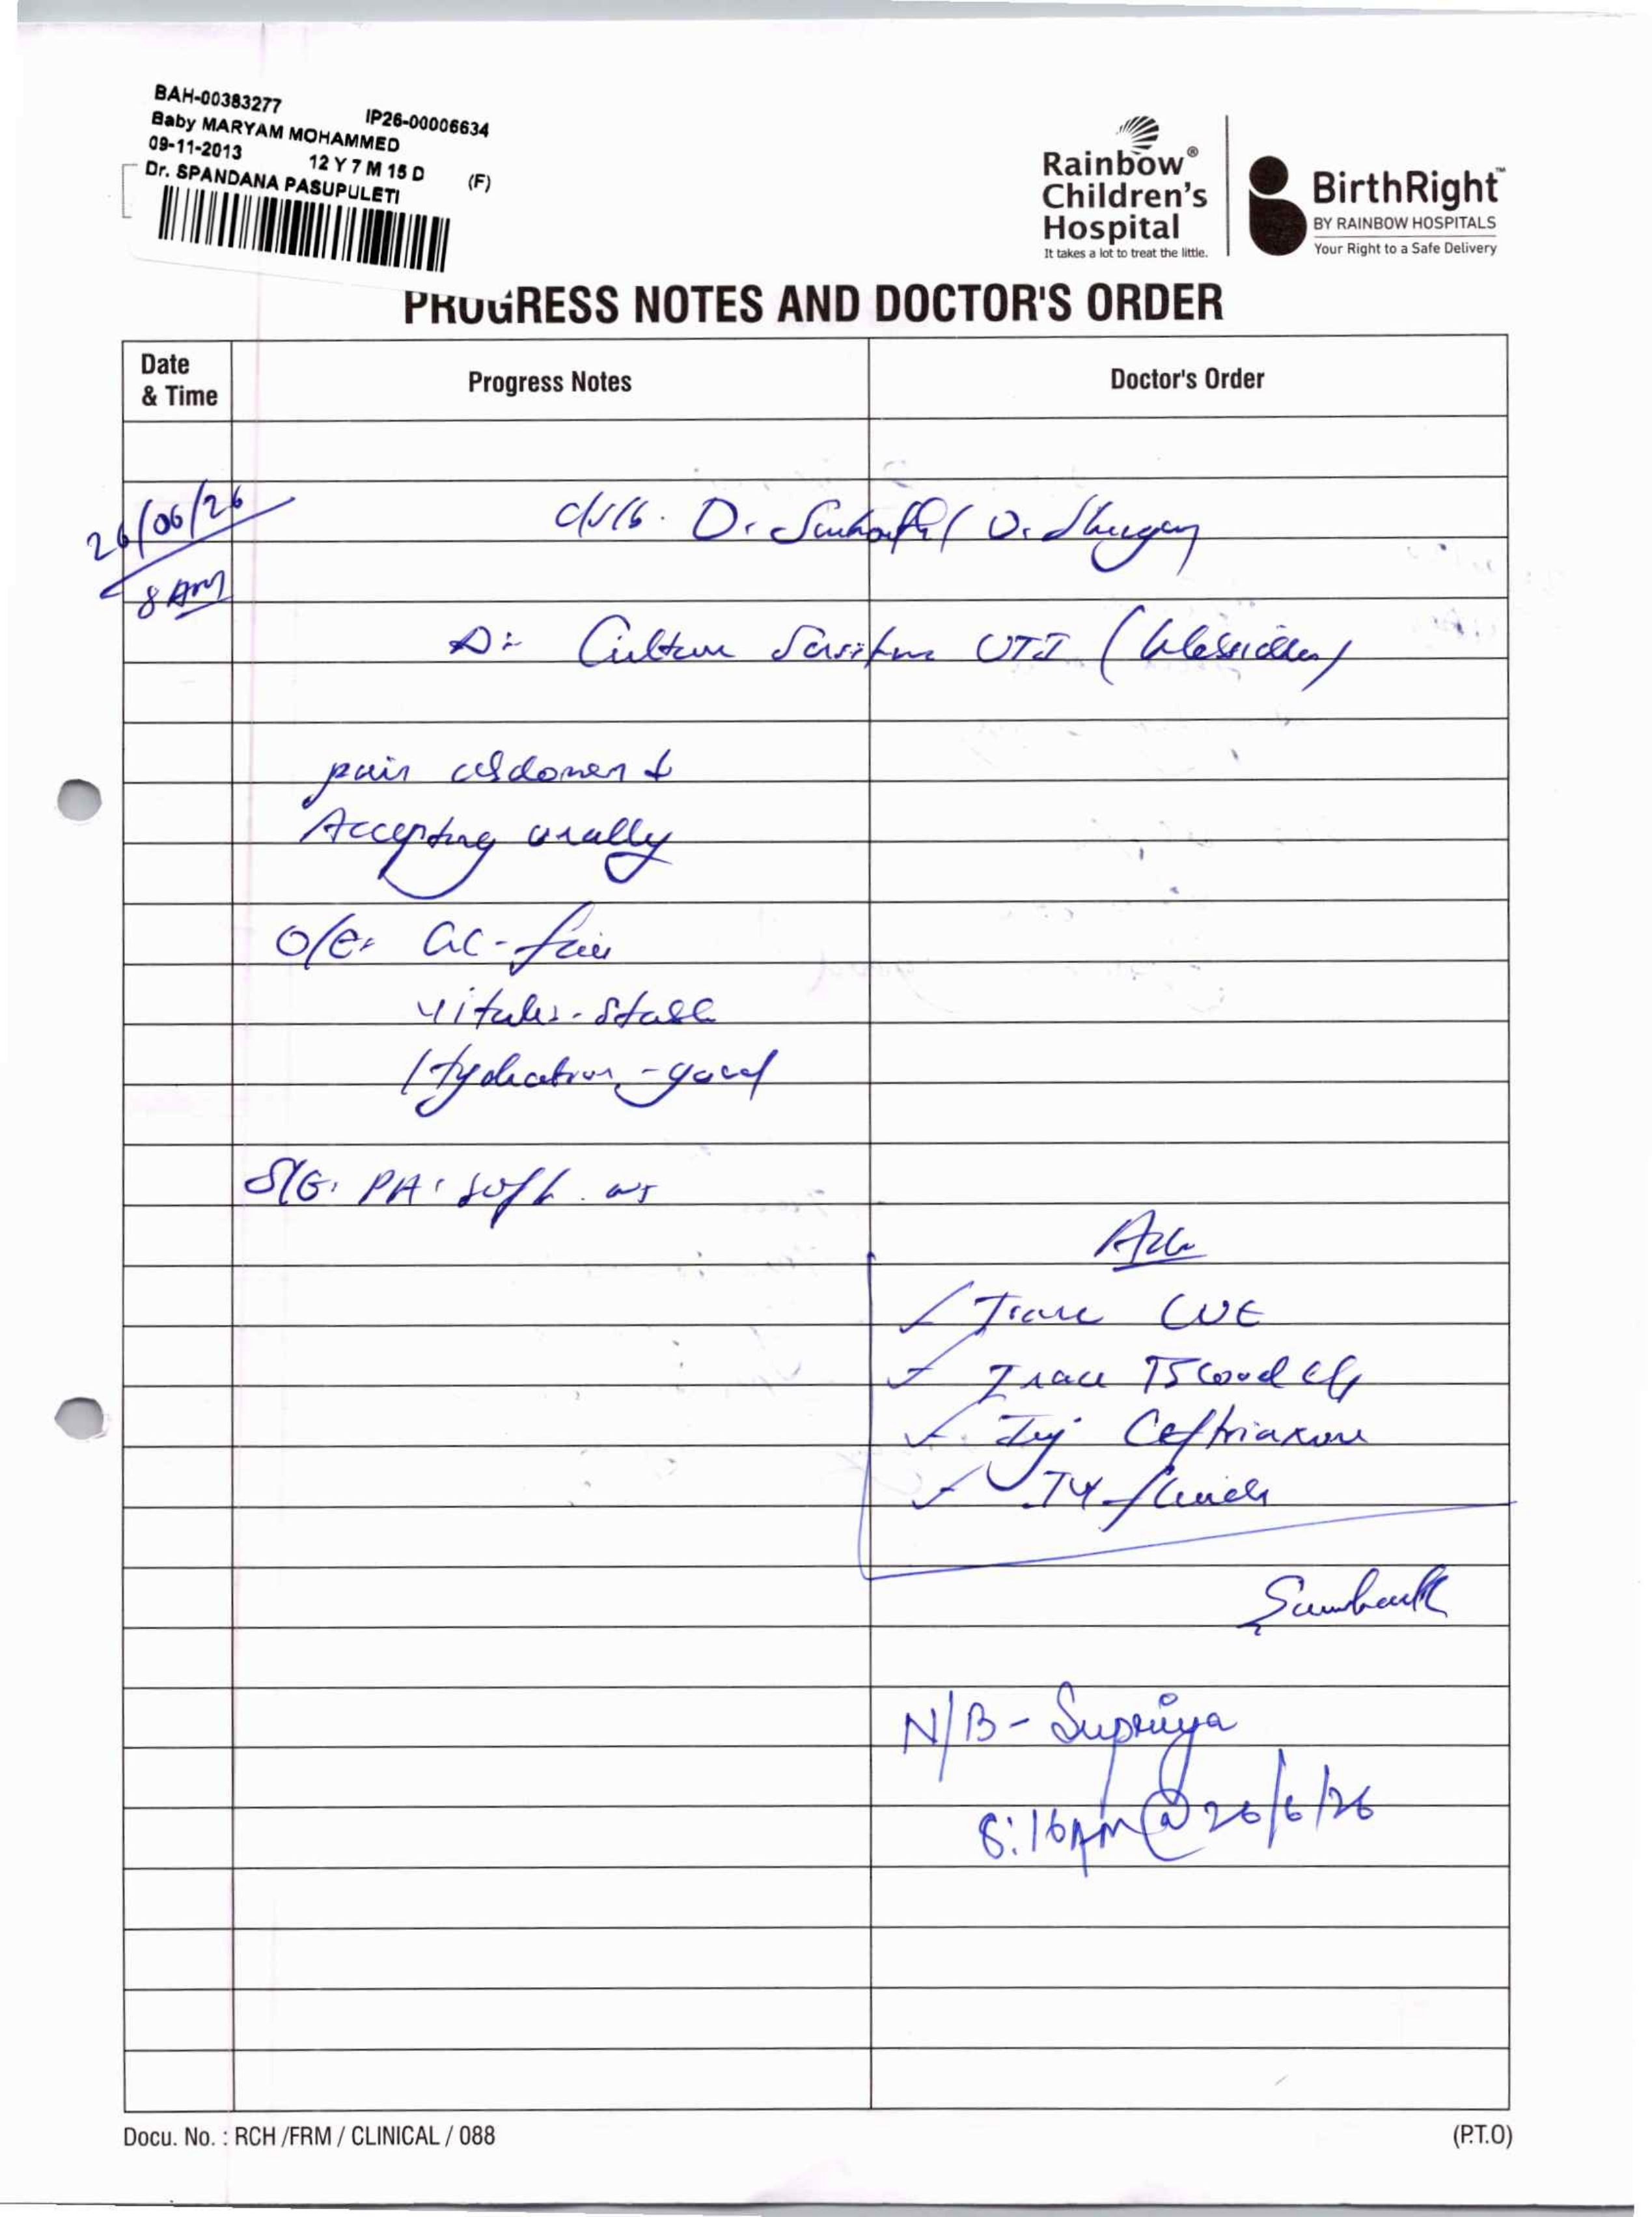 BAH-00383277 IP26-00006634
Baby MARYAM MOHAMMED
09-11-2013 12 Y 7 M 15 D (F)
Dr. SPANDANA PASUPULETI
Rainbow®
Children's
Hospital
It takes a lot to treat the little.
BirthRight™
BY RAINBOW HOSPITALS
Your Right to a Safe Delivery
PROGRESS NOTES AND DOCTOR'S ORDER
Date
& Time
Progress Notes
Doctor's Order
26/06/26
8 AM
D:- Culture UTI
pain abdomen +
Accepting orally
O/E: GC - fair
vitals - stable
Hydration - good
S/E: PA: soft
Trace CUE
Trace Blood
Inj Ceftriaxone
IV fluids
N/B - Supriya
8:16AM @ 26/6/26
Docu. No. : RCH /FRM / CLINICAL / 088
(P.T.O)